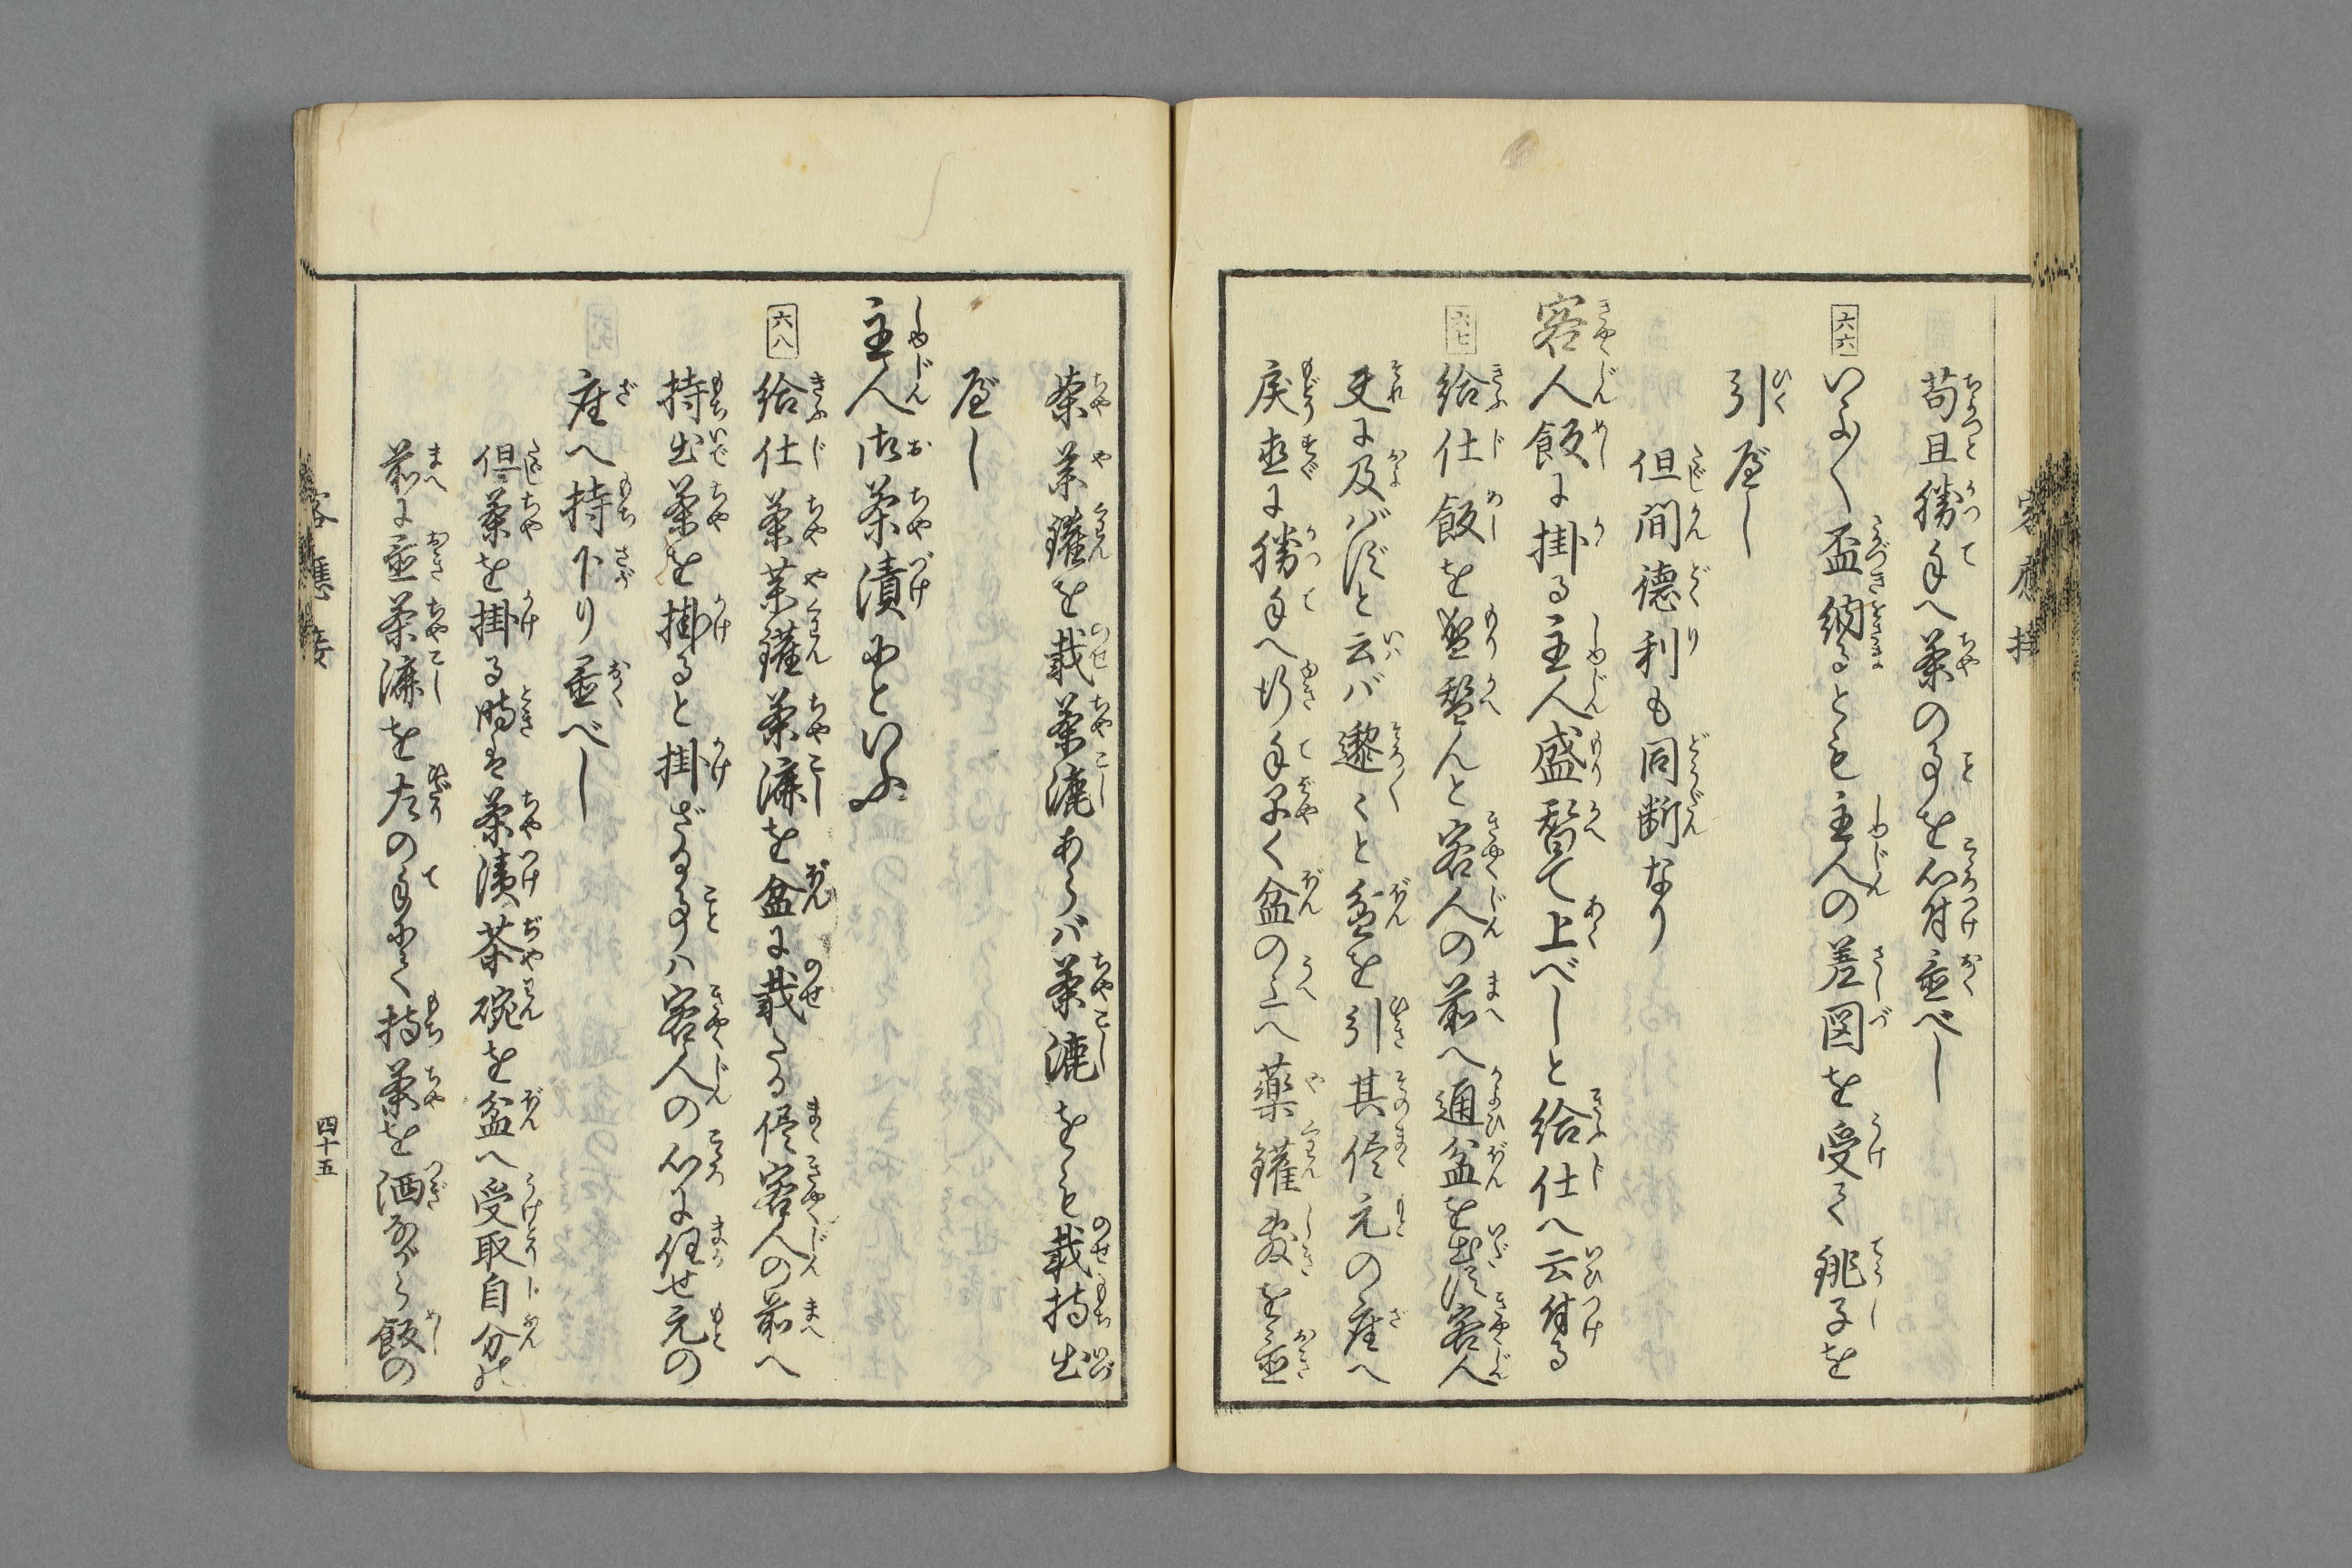 苟且勝手へ茶の事を心付置べし
六六
いよ〳〵盃納るとも主人の差図を受て銚子を
引べし
但間徳利も同断なり
客人飯に掛る主人盛替て上べしと給仕へ云付る
六七
給仕飯を盛替んと客人の前へ通盆を出す客人
夫に及バずと云バ遬くと盆を引其侭元の座へ
戻直に勝手へ行手早く盆の上へ薬鑵敷を置
茶薬鑵を載茶漉あらバ茶漉をも載持出
べし
主人御茶漬にといふ
六八
給仕茶薬鑵茶漉を盆に載たる侭客人の前へ
持出茶を掛ると掛ざる事ハ客人の心に任せ元の
座へ持下り置べし
但茶を掛る時は茶漬茶碗を盆へ受取自分の
前に置茶漉を左の手にて持茶を洒ながら飯の
客應接
四十五